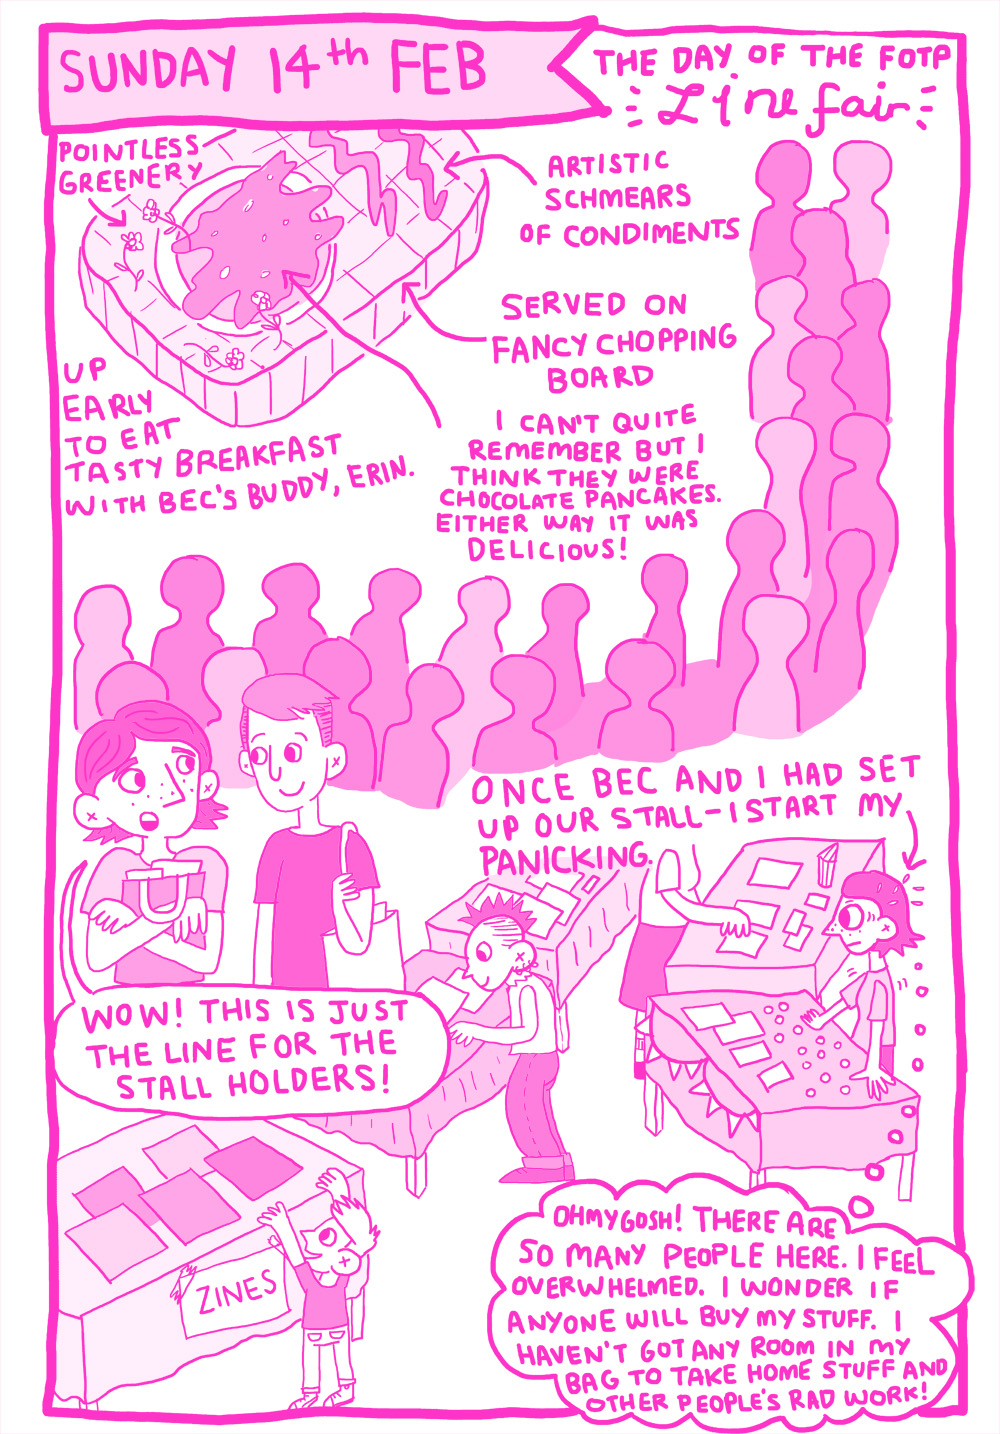 SUNDAY 14th FEB
THE DAY OF THE FOTP
Zine fair
POINTLESS
GREENERY
ARTISTIC
SCHMEARS
OF CONDIMENTS
SERVED ON
FANCY CHOPPING
BOARD
UP
EARLY
TO EAT
TASTY BREAKFAST
WITH BEC'S BUDDY, ERIN.
I CAN'T QUITE
REMEMBER BUT I
THINK THEY WERE
CHOCOLATE PANCAKES.
EITHER WAY IT WAS
DELICIOUS!
ONCE BEC AND I HAD SET
UP OUR STALL-I START MY
PANICKING.
WOW! THIS IS JUST
THE LINE FOR THE
STALL HOLDERS!
ZINES
OHMYGOSH! THERE ARE
SO MANY PEOPLE HERE. I FEEL
OVERWHELMED. I WONDER IF
ANYONE WILL BUY MY STUFF. I
HAVEN'T GOT ANY ROOM IN MY
BAG TO TAKE HOME STUFF AND
OTHER PEOPLE'S RAD WORK!